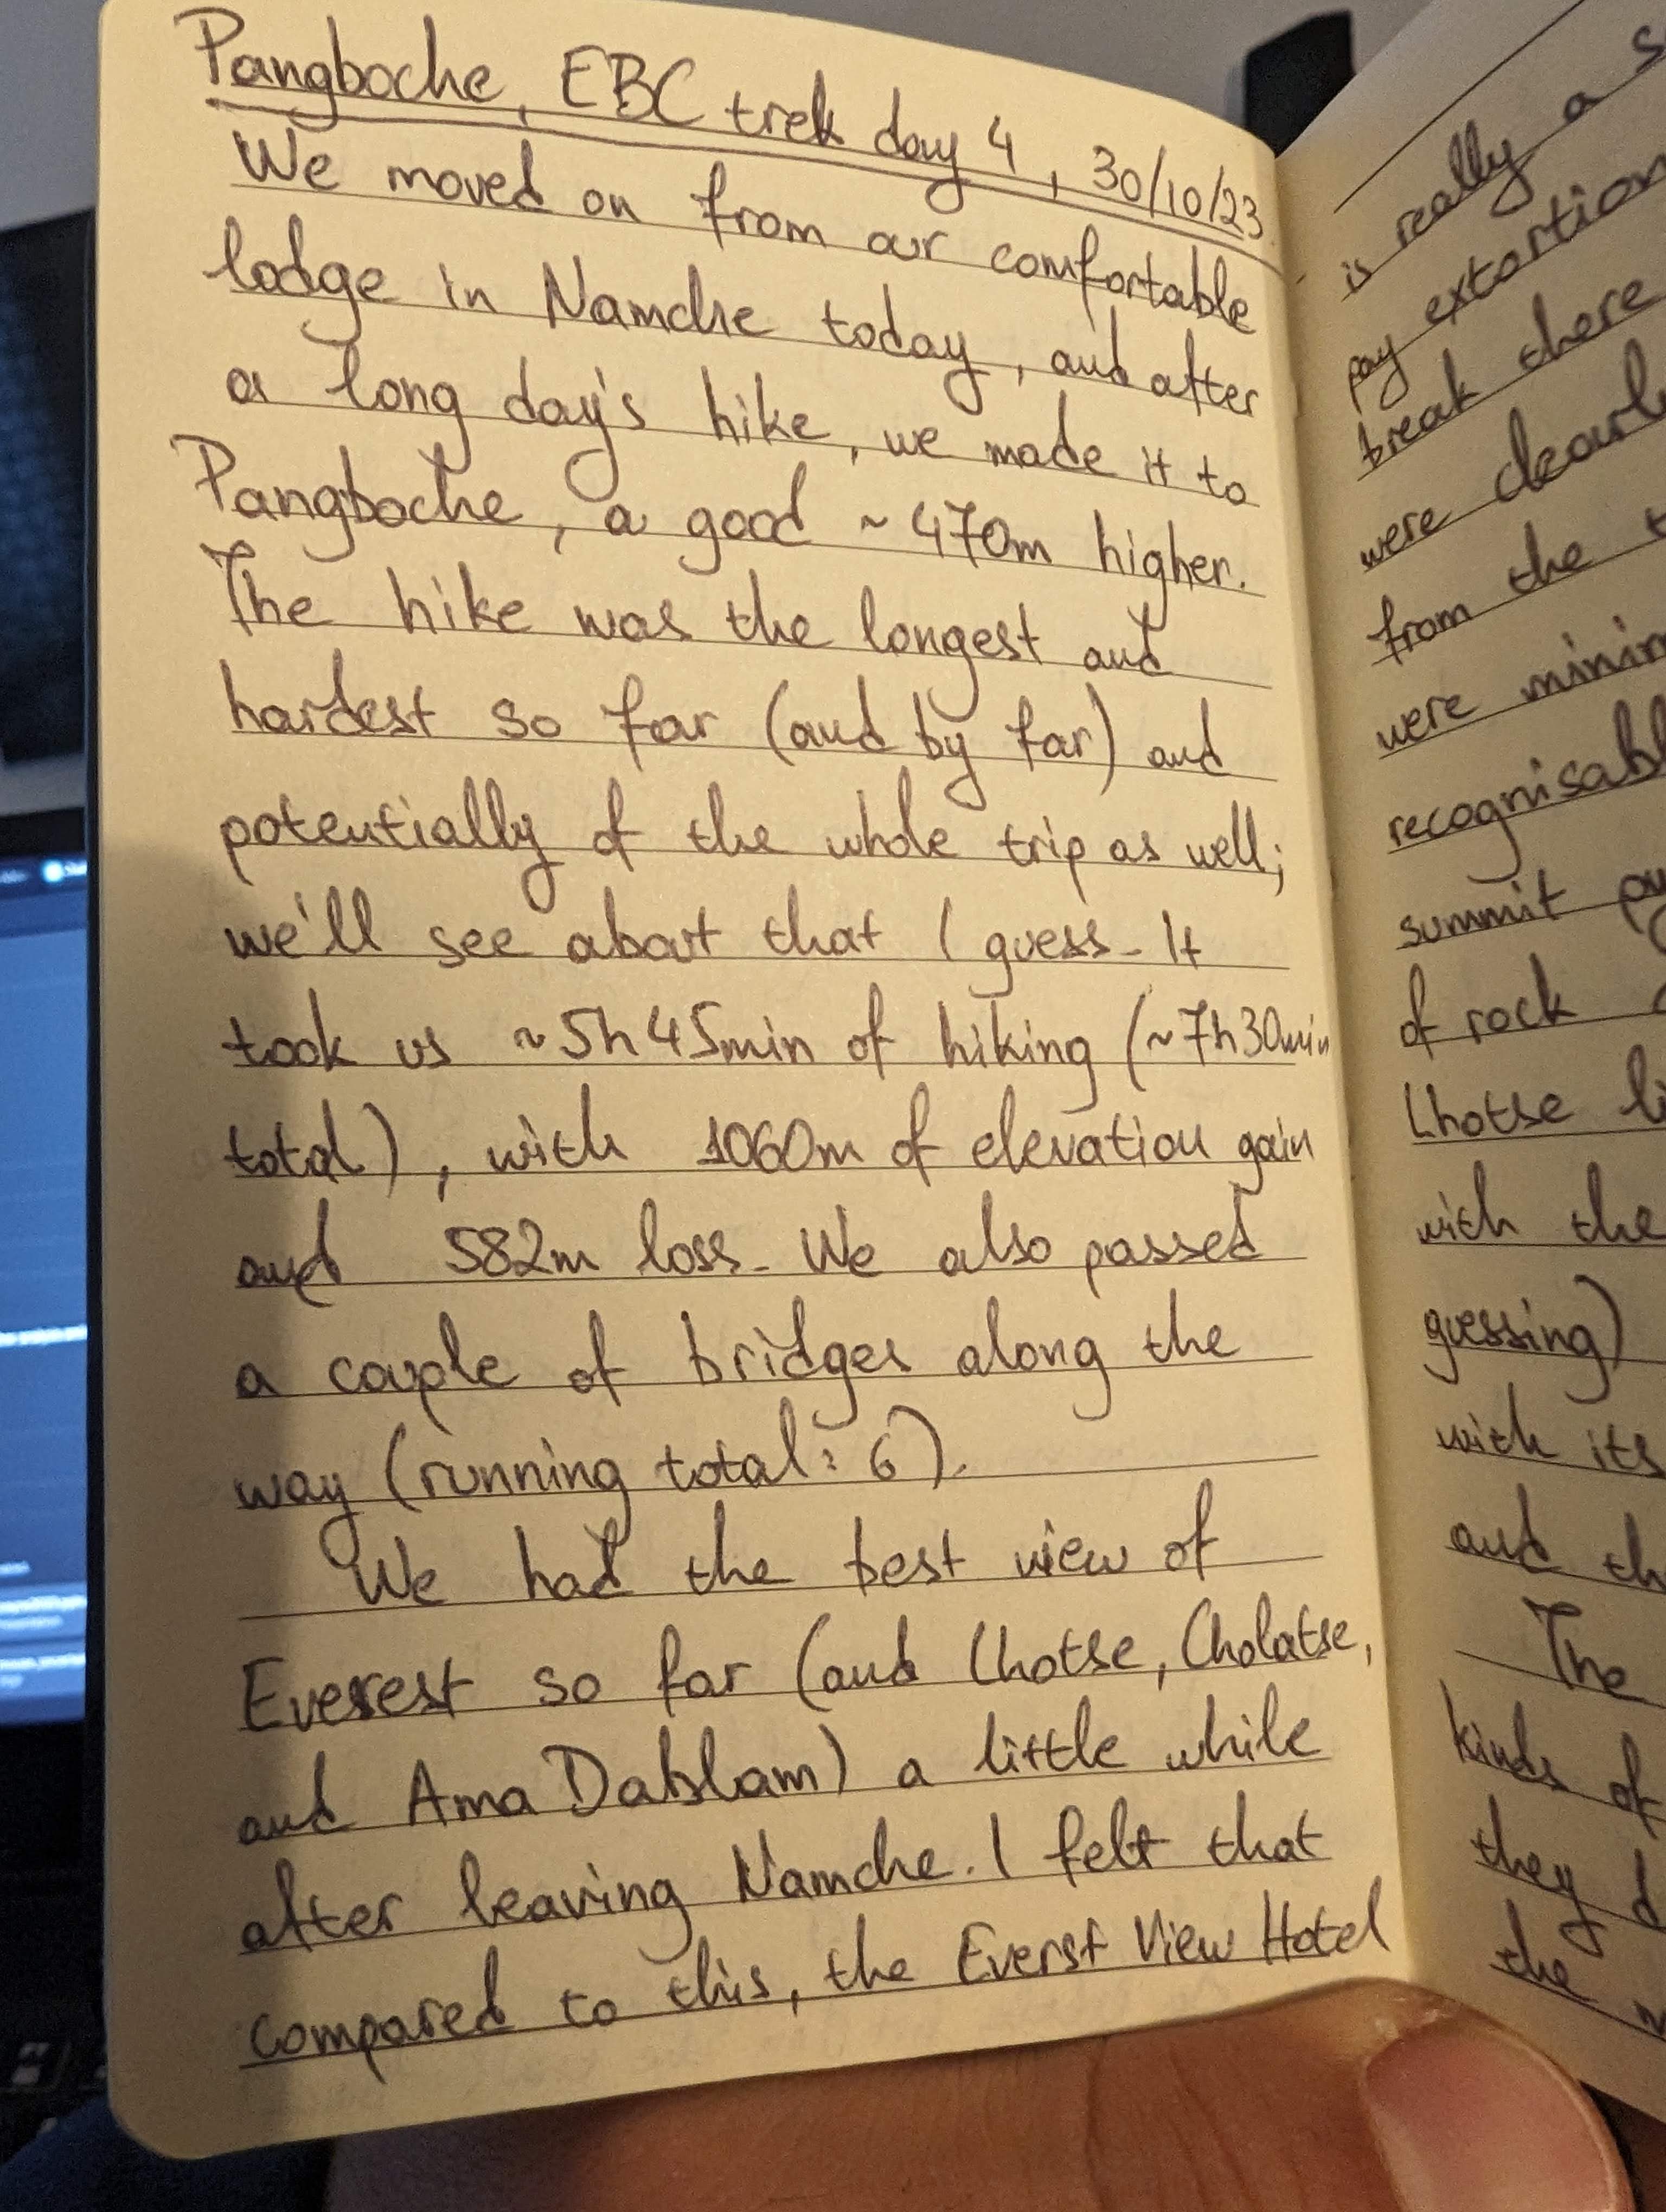 Pangboche, EBC trek day 4, 30/10/23
We moved on from our comfortable
lodge in Namche today, and after
a long day's hike, we made it to
Pangboche, a good ~470m higher.
The hike was the longest and
hardest so far (and by far) and
potentially of the whole trip as well;
we'll see about that I guess. It
took us ~5h45min of hiking (~7h30min
total), with 1060m of elevation gain
and 582m loss. We also passed
a couple of bridges along the
way (running total: 6).
We had the best view of
Everest so far (and Lhotse, Cholatse,
and Ama Dablam) a little while
after leaving Namche. I felt that
compared to this, the Everst View Hotel
is really a
pay extortion
break there
were
from the
were
of rock
Lhotse
with the
guessing)
with its
and
The
kinds of
they
the